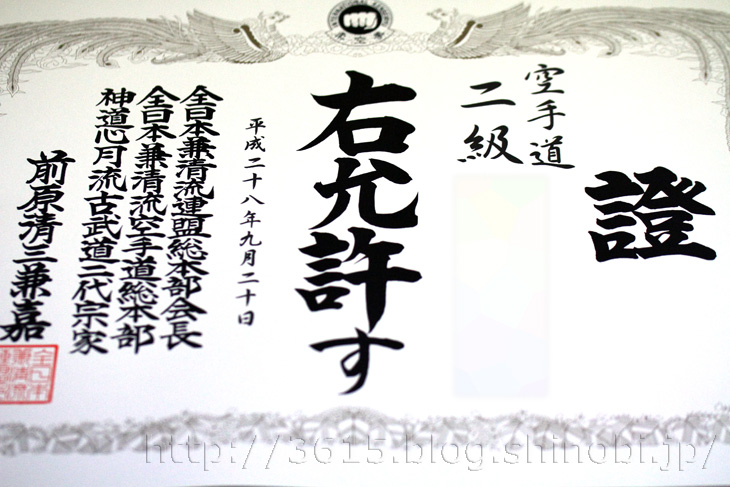 證
空手道
二級
右允許す
平成二十八年九月二十日
全日本兼清流連盟総本部会長
全日本兼清流空手道総本部
神道心月流古武道二代宗家
前原清三兼嘉
http://3615.blog.shinobi.jp/